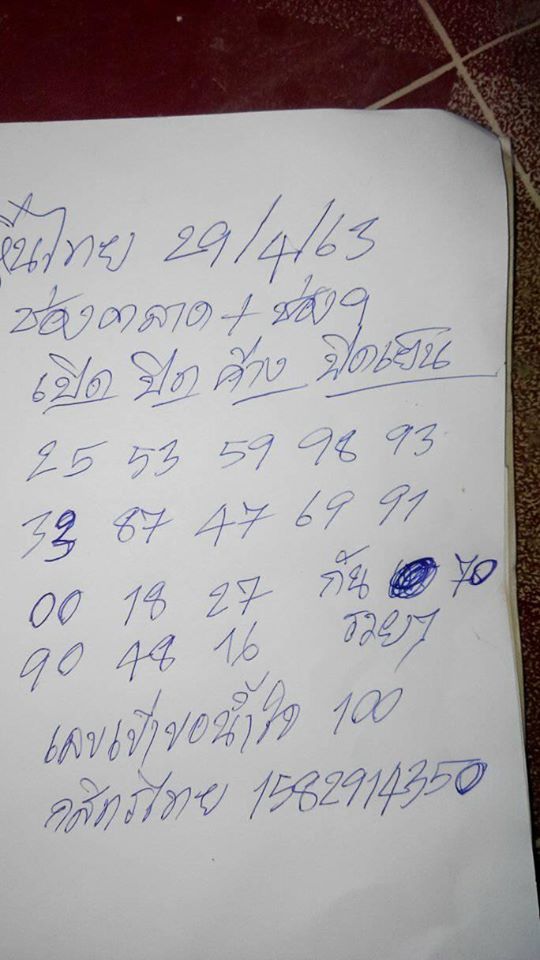 หุ้นไทย 29/4/63
ช่องตลาด + ช่อง 9
เปิด ปิด ค้าง ปิดเย็น
25 53 59 98 93
33 87 47 69 91
00 18 27 กัน 70
90 48 16 รวยๆ
เลขเข้าขอน้ำใจ 100
กสิกรไทย 1582914350